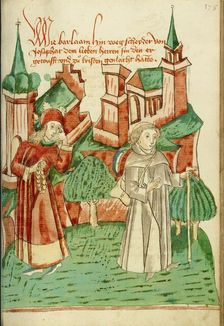 Wie barlaam hin weg scheyden von
Josaphat dem lieben herren sin den er
getoufft und zu cristen gemacht hatte